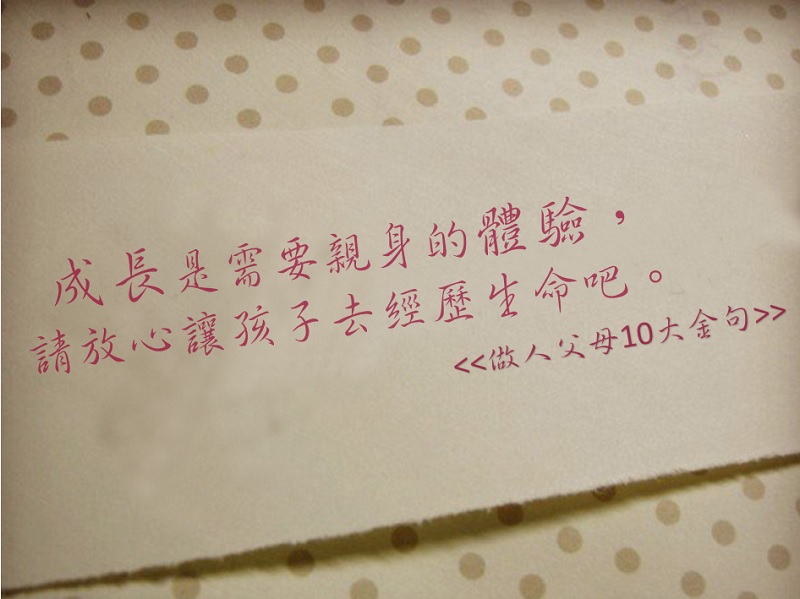 成長是需要親身的體驗，
請放心讓孩子去經歷生命吧。
<<做人父母10大金句>>